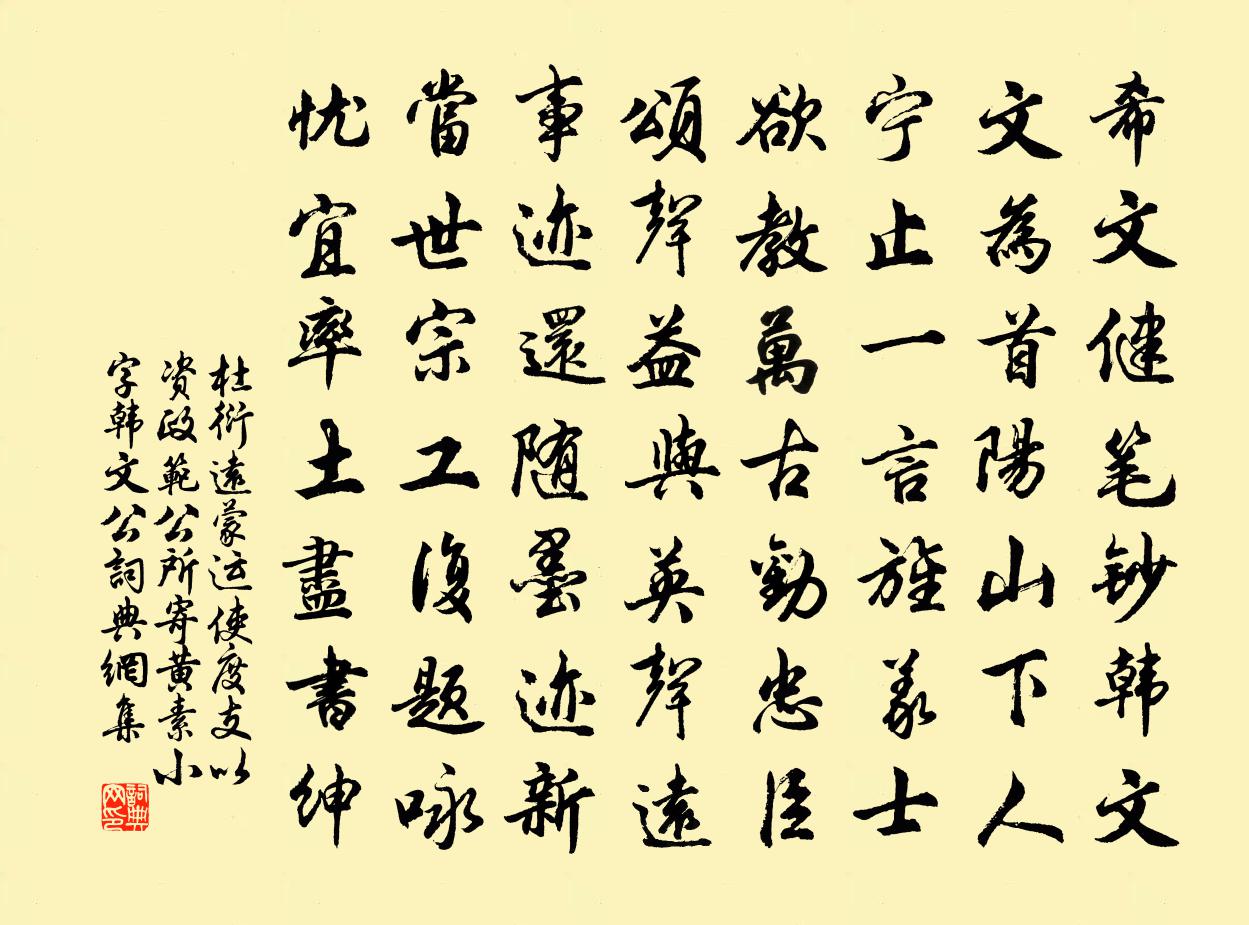 希文健笔鈔韩文
文為首陽山下人
宁止一言旌義士
欲教萬古勸忠臣
頌聲益與英聲遠
事迹還随墨迹新
當世宗工復題咏
忧宜率土盡書紳
杜衍遠蒙运使度支以
资政範公所寄黄素小
字韩文公詞典網集
詞典网印